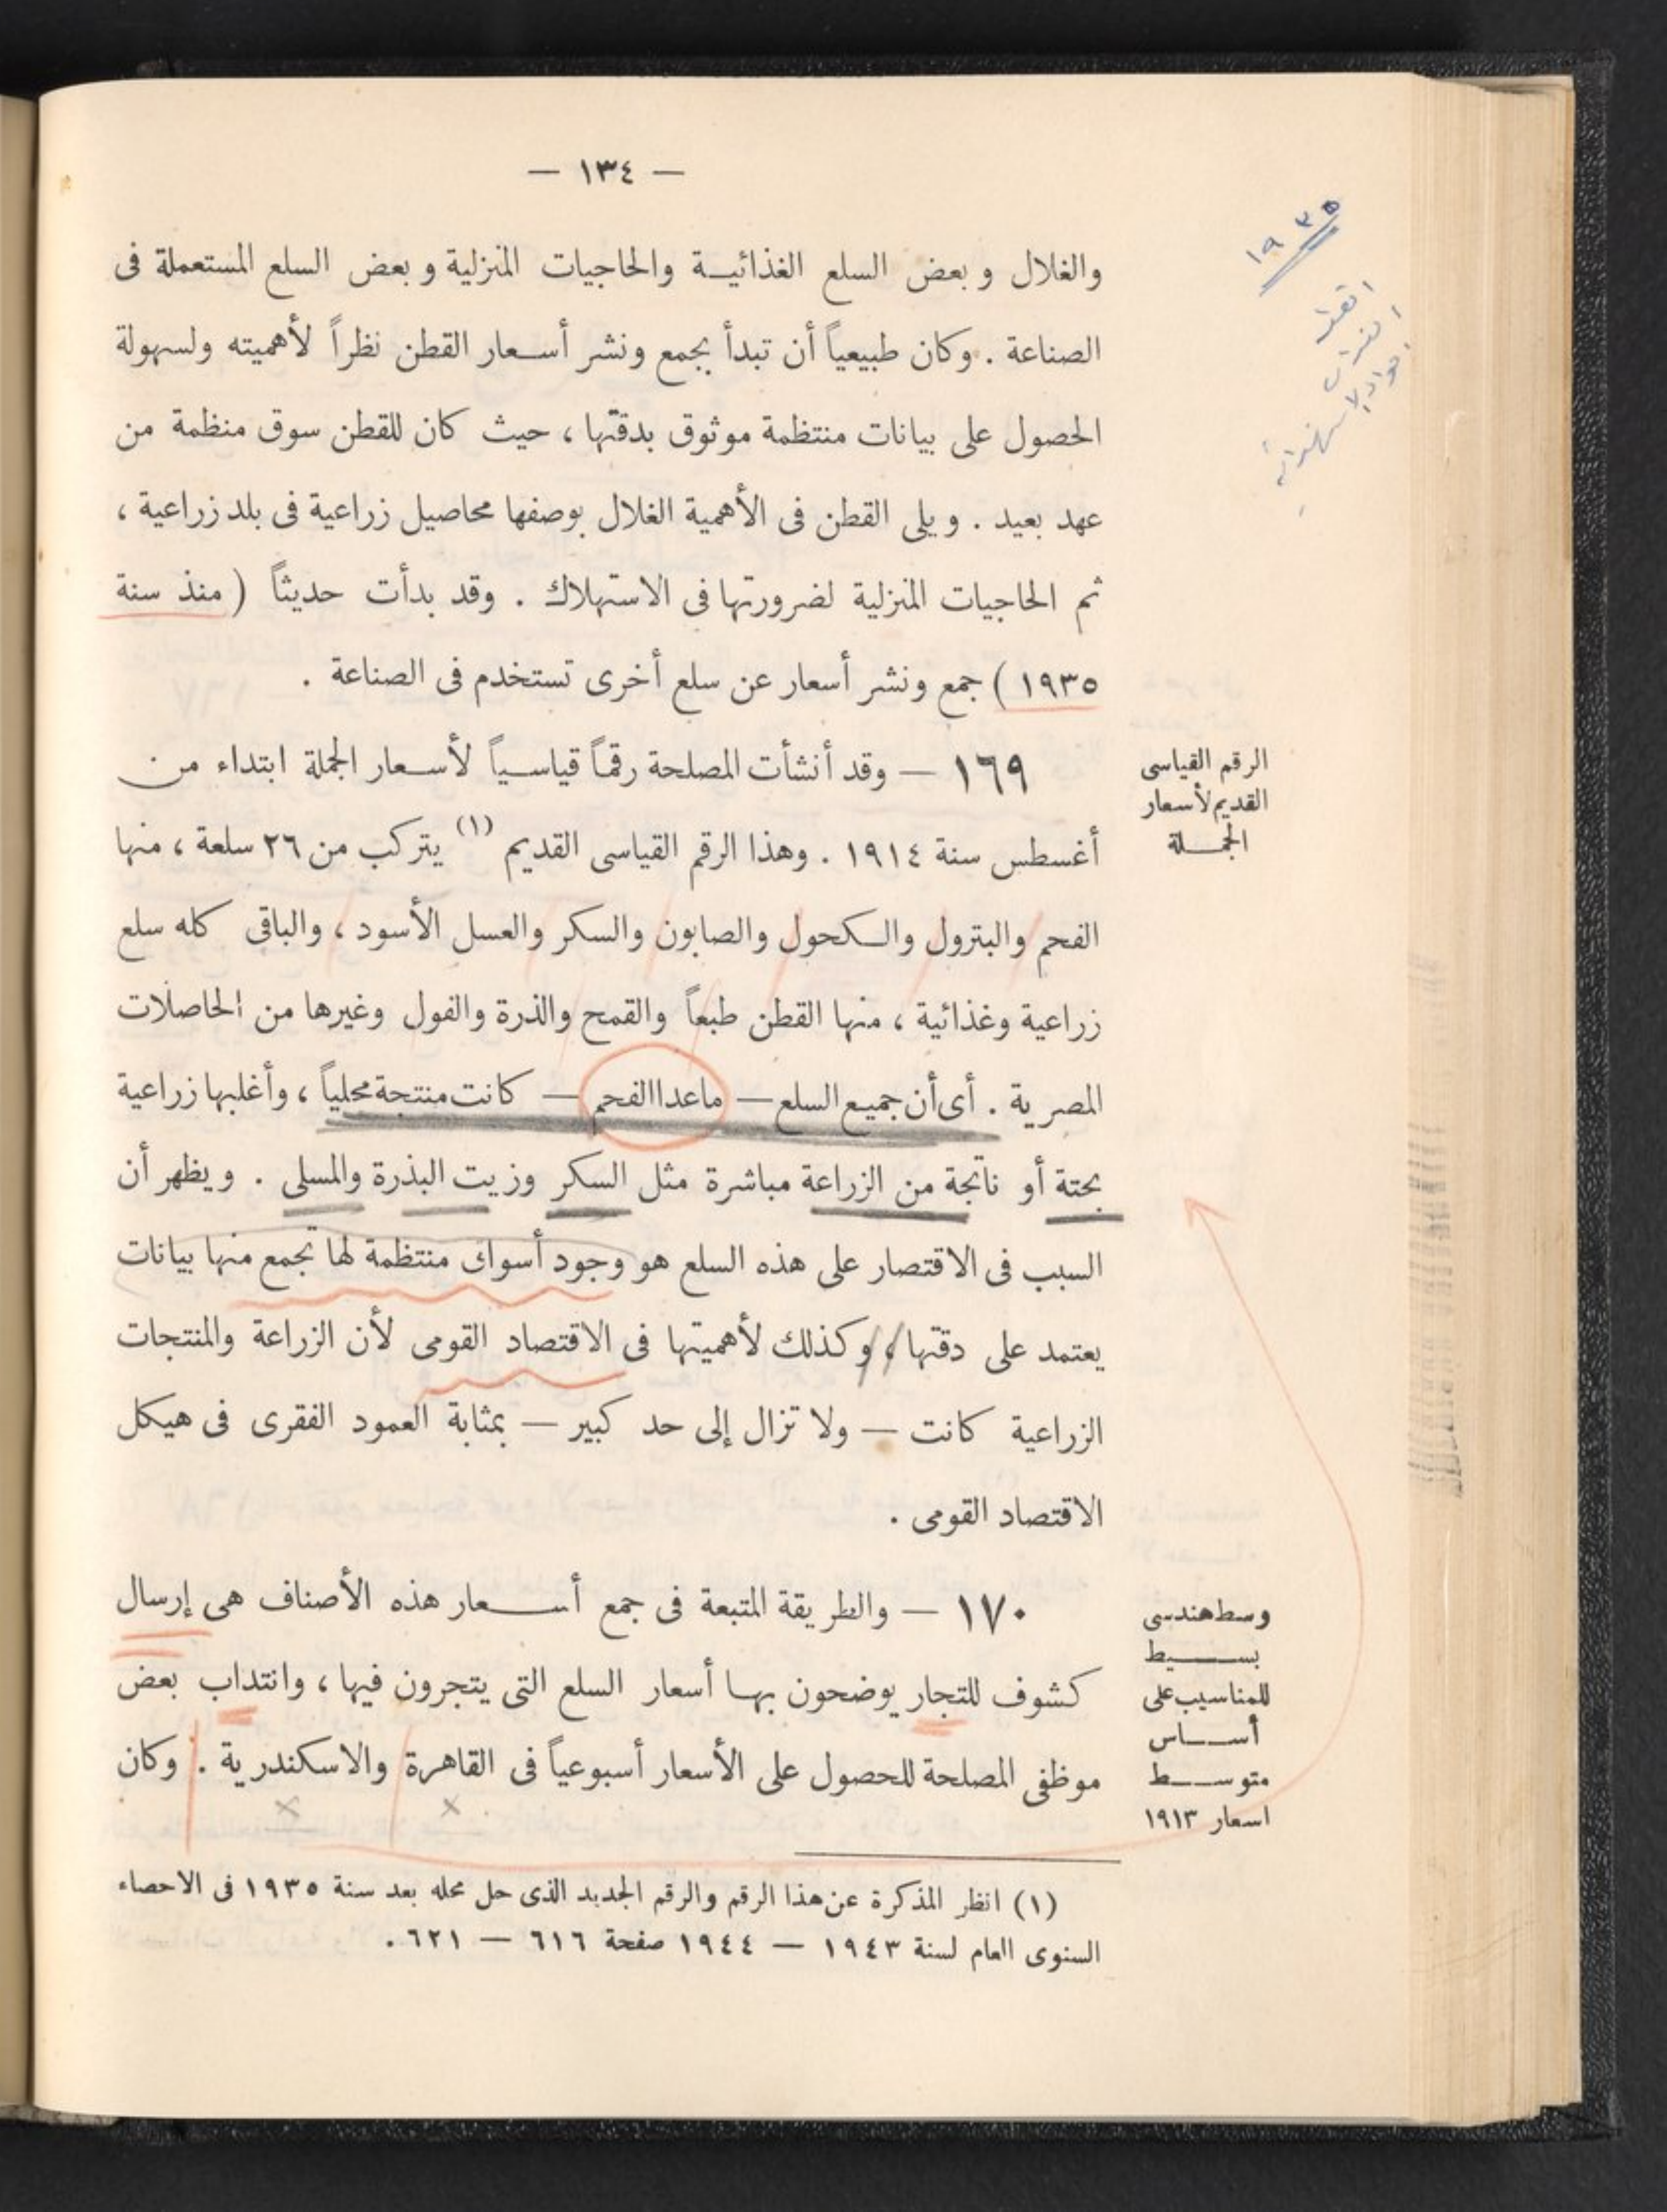 — ١٣٤ —
١٩٣٥
والغلال وبعض السلع الغذائية والحاجيات المنزلية وبعض السلع المستعملة فى
الصناعة . وكان طبيعياً أن تبدأ بجمع ونشر أسعار القطن نظراً لأهميته ولسهولة
الحصول على بيانات منتظمة موثوق بدقتها ، حيث كان للقطن سوق منظمة من
عهد بعيد . ويلى القطن فى الأهمية الغلال بوصفها محاصيل زراعية فى بلد زراعية ،
ثم الحاجيات المنزلية لضرورتها فى الاستهلاك . وقد بدأت حديثاً ( منذ سنة
١٩٣٥ ) جمع ونشر أسعار عن سلع أخرى تستخدم فى الصناعة .
الرقم القياسى
القديم لأسعار
الجملة
١٦٩ — وقد أنشأت المصلحة رقماً قياسياً لأسعار الجملة ابتداء من
أغسطس سنة ١٩١٤ . وهذا الرقم القياسى القديم (١) يتركب من ٢٦ سلعة ، منها
الفحم والبترول والكحول والصابون والسكر والعسل الأسود ، والباقى كله سلع
زراعية وغذائية ، منها القطن طبعاً والقمح والذرة والفول وغيرها من الحاصلات
المصرية . أى أن جميع السلع — ماعدا الفحم — كانت منتجة محلياً ، وأغلبها زراعية
بحتة أو ناتجة من الزراعة مباشرة مثل السكر وزيت البذرة والمسلى . ويظهر أن
السبب فى الاقتصار على هذه السلع هو وجود أسواك منتظمة لها تجمع منها بيانات
يعتمد على دقتها ، وكذلك لأهميتها فى الاقتصاد القومى لأن الزراعة والمنتجات
الزراعية كانت — ولا تزال إلى حد كبير — بمثابة العمود الفقرى فى هيكل
الاقتصاد القومى .
وسط هندسى
بسيط
للمناسيب على
أساس
متوسط
اسعار ١٩١٣
١٧٠ — والطريقة المتبعة فى جمع أسعار هذه الأصناف هى إرسال
كشوف للتجار يوضحون بها أسعار السلع التى يتجرون فيها ، وانتداب بعض
موظفى المصلحة للحصول على الأسعار أسبوعياً فى القاهرة والاسكندرية . وكان
(١) انظر المذكرة عن هذا الرقم والرقم الجديد الذى حل محله بعد سنة ١٩٣٥ فى الاحصاء
السنوى العام لسنة ١٩٤٣ — ١٩٤٤ صفحة ٦١٦ — ٦٢١ .